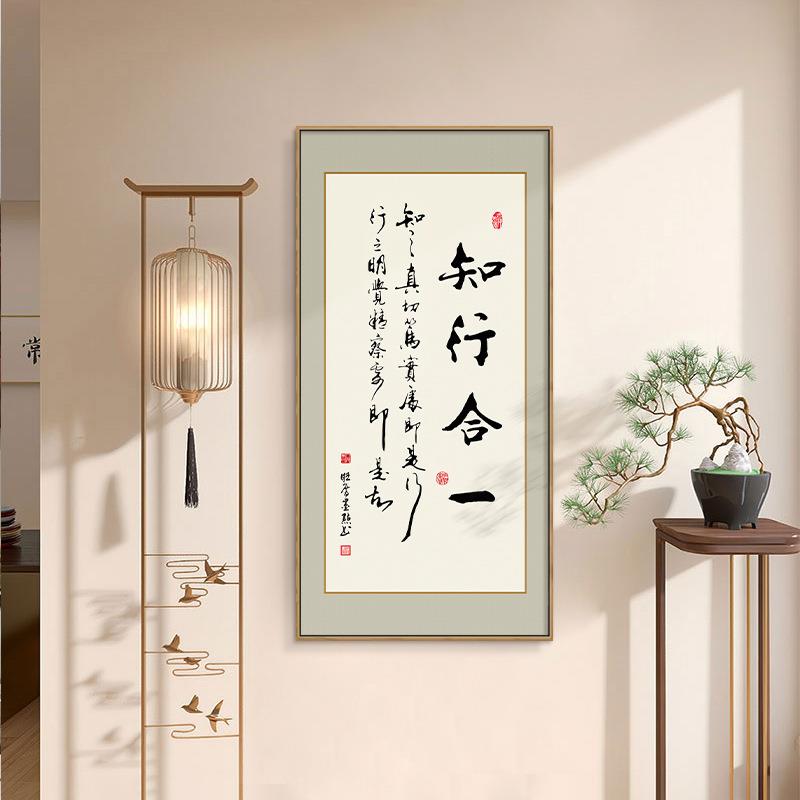 知行合一
知之真切篤實處即是行
行之明覺精察處即是知
常